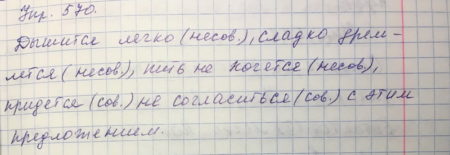 Упр. 570.
Дышится легко (несов), сладко дрем-
лется (несов), пить не хочется (несов),
придется (сов.) не согласиться (сов.) с этим
предложением.